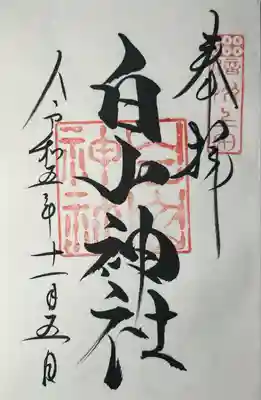 奉拝
白山神社
令和五年十一月五日
白山神社